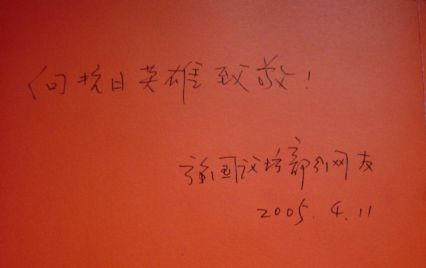 向抗日英雄致敬!
强国论坛部分网友
2005.4.11